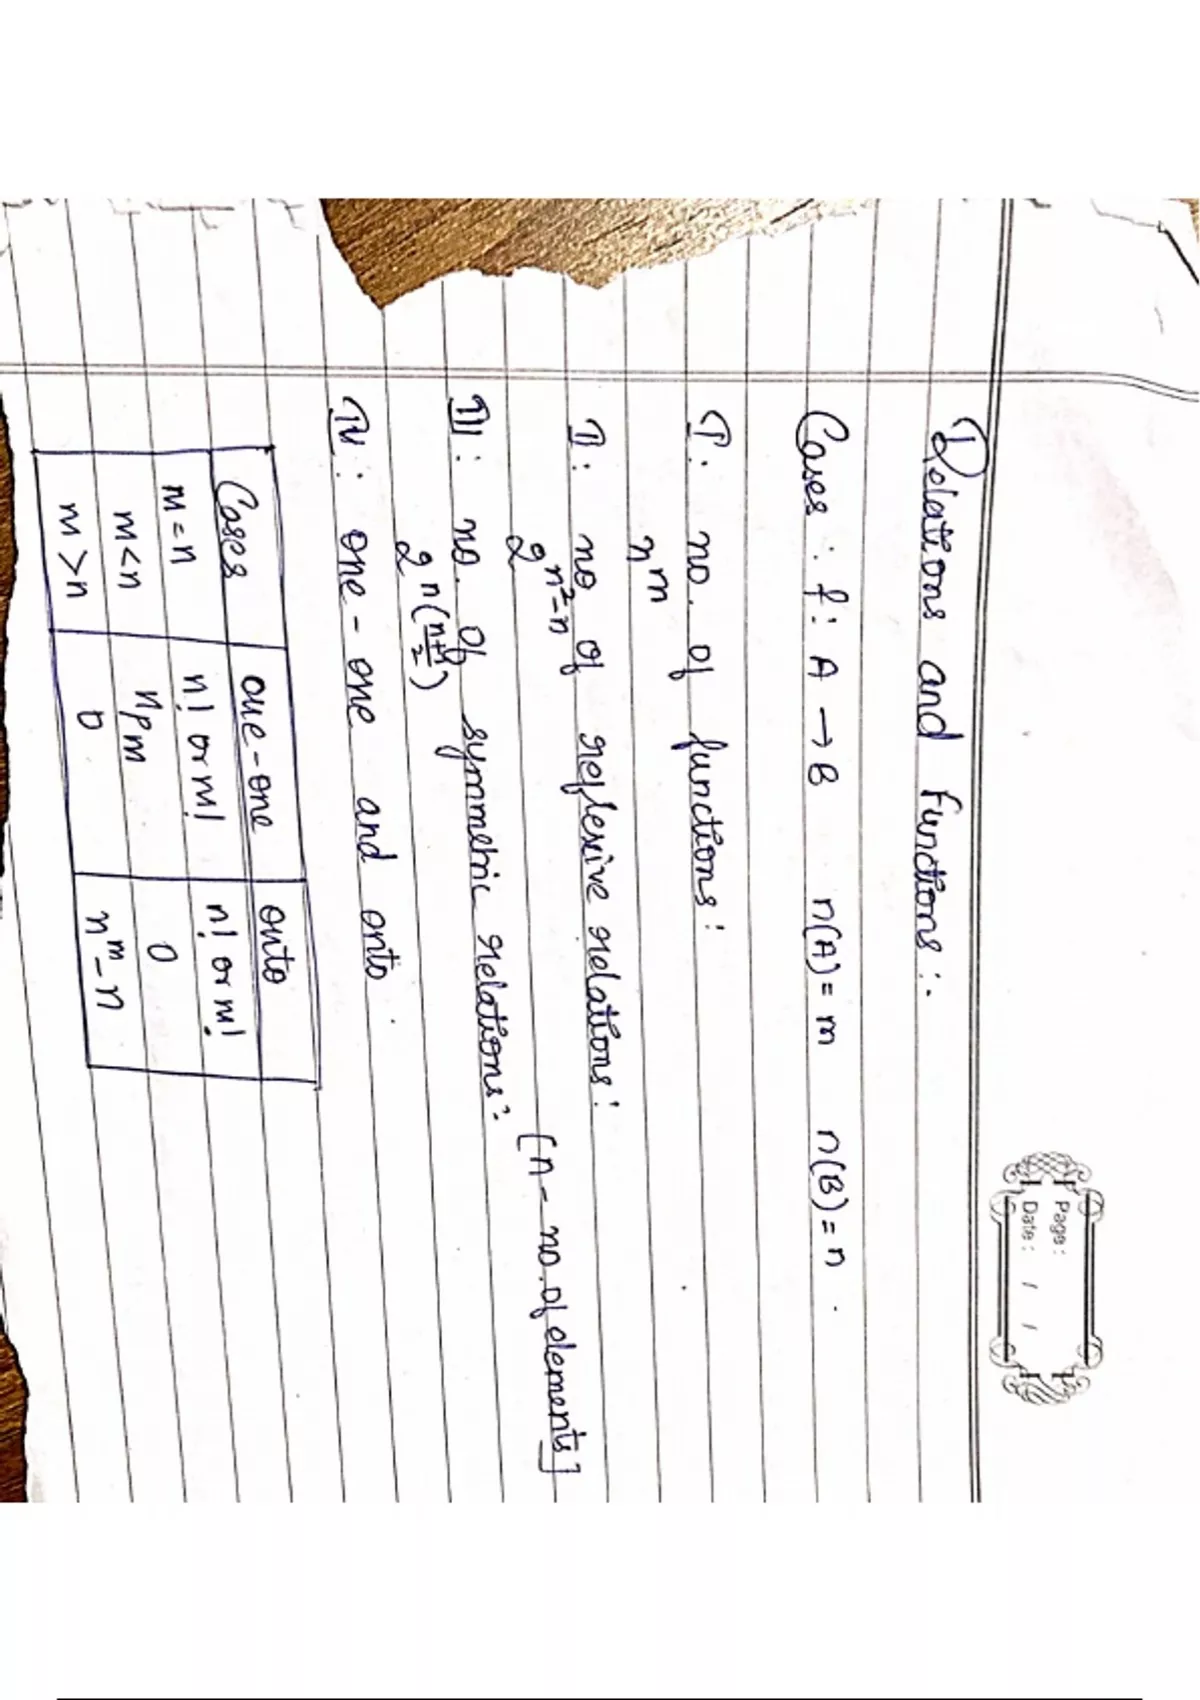 Page:
Date: / /
Relations and Functions:-
Cases: f: A → B n(A) = m n(B) = n.
I: no. of functions:
n^m
II: no of reflexive relations:
2^(n²-n) [n - no. of elements]
III: no. of symmetric relations:
2^n((n+1)/2)
IV: one-one and onto.
Cases one-one onto
m=n n! or m! n! or m!
m<n nPm 0
m>n 0 n^m - n